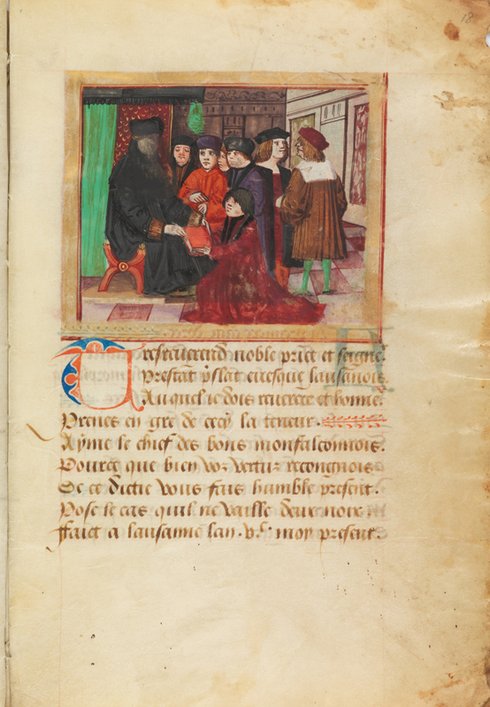 18
Tresreuerend noble prince et seigneur
Prestant p̃slat euesque lausanois
Auquel ie dois reuerece et honneʳ
Prenes en gre de cecy la teneur.
Ayme le chief des bons monfalconnois.
Pource que bien voz vertuz recongnois
De ce dictie vous fais humble present.
Pose le cas quil ne vaille deux noix
Faict a lausanne lan . v.ᶜ moy present.